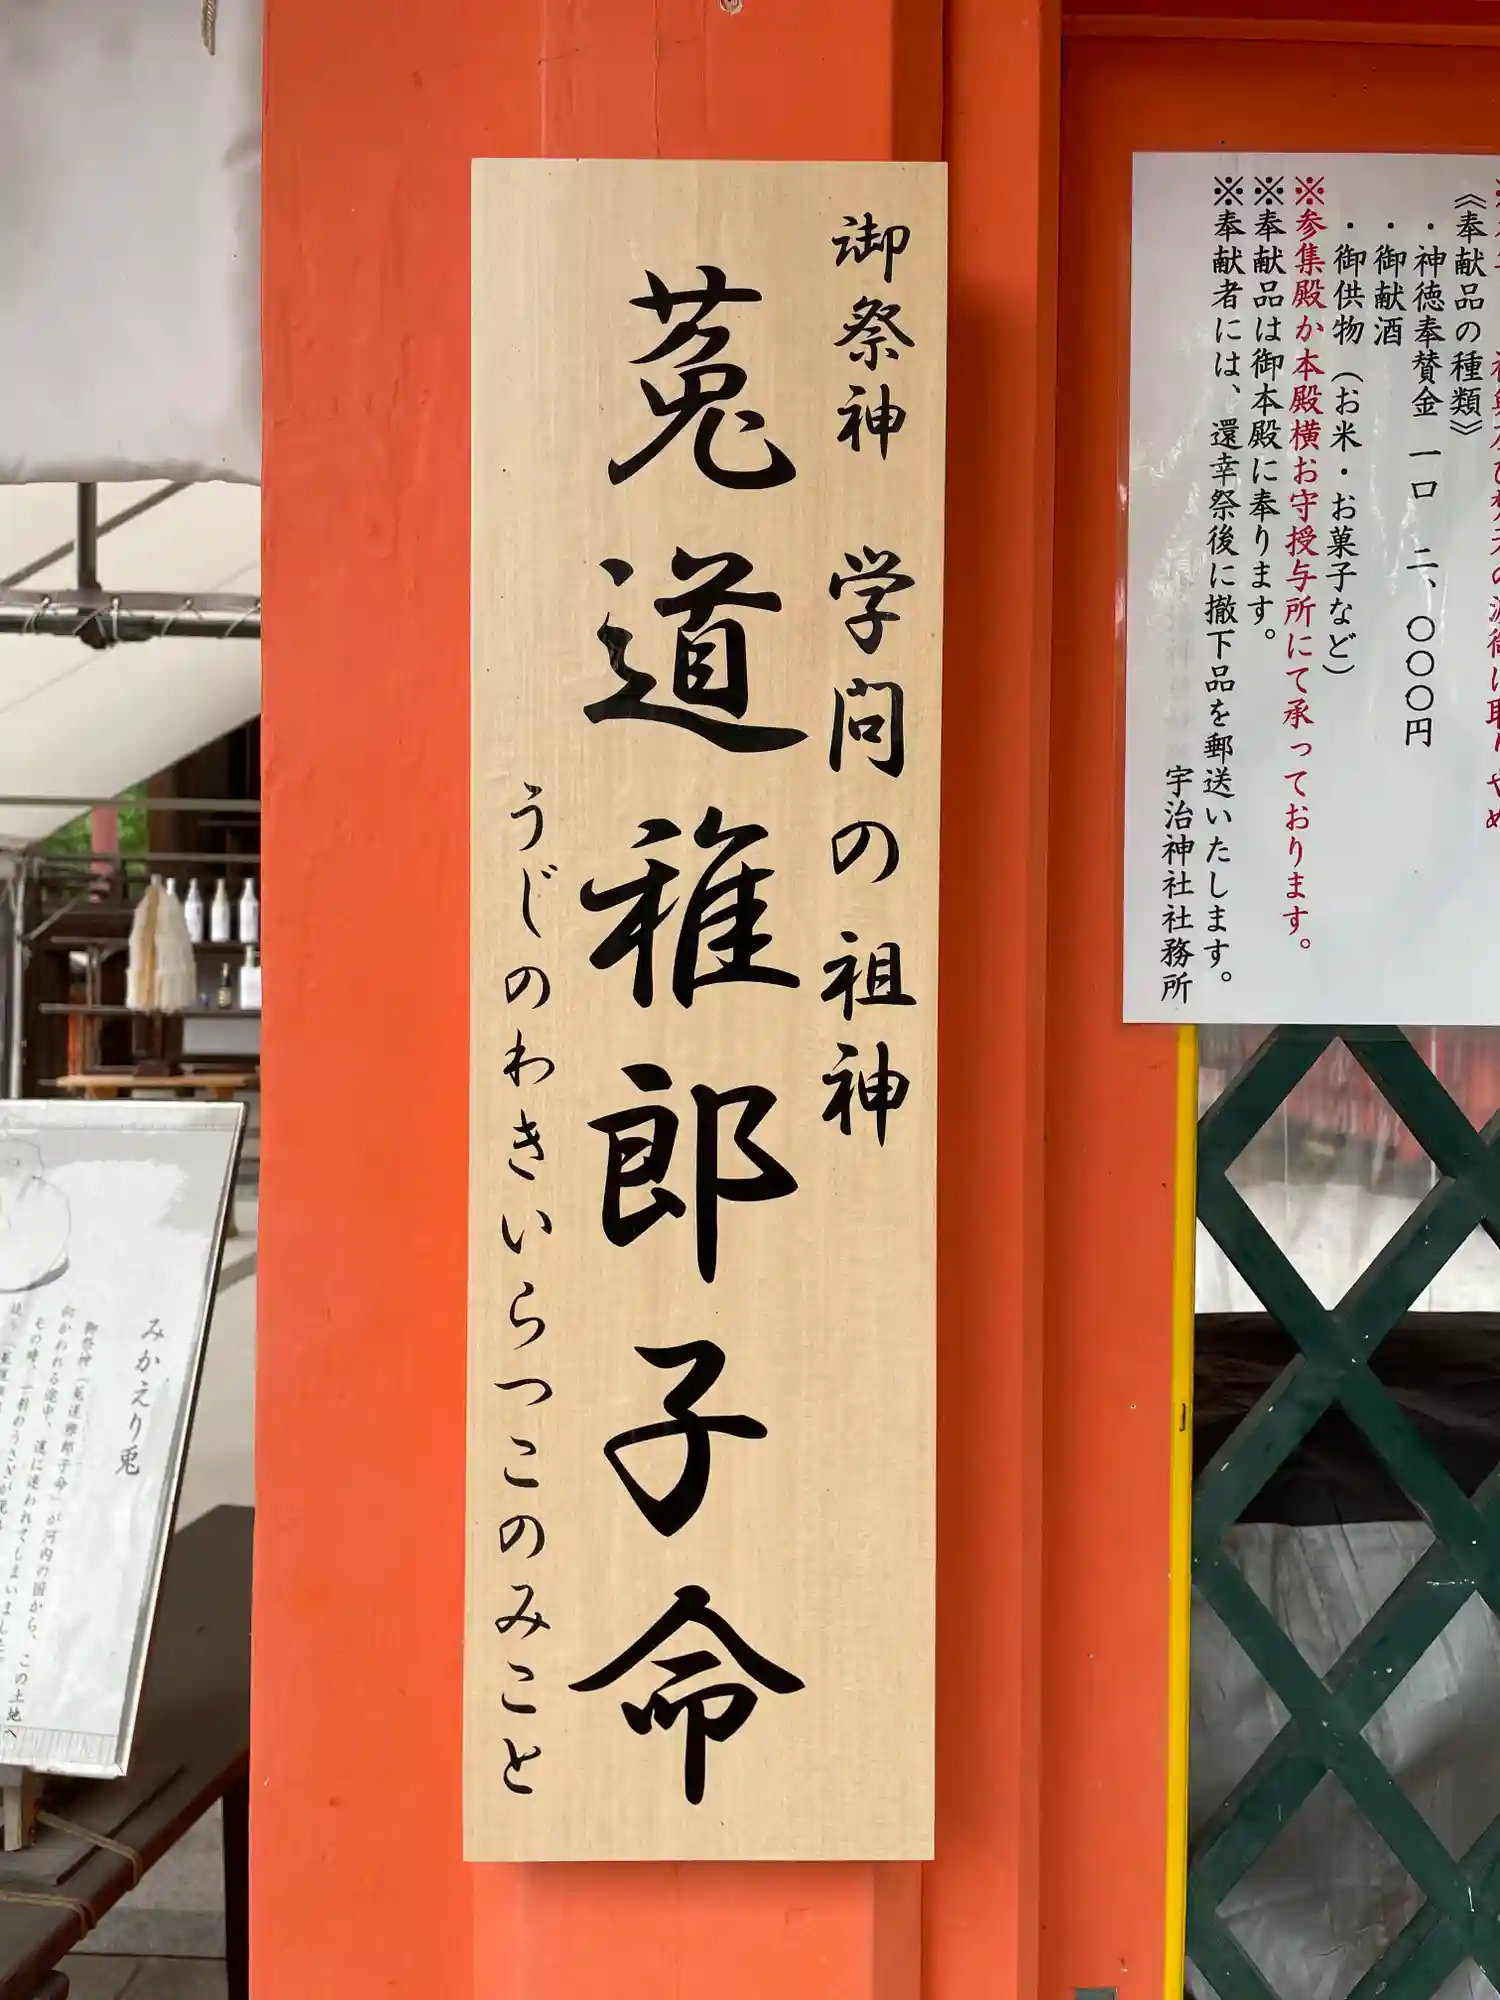 《奉献品の種類》
・神徳奉賛金 一口 二、〇〇〇円
・御献酒
・御供物（お米・お菓子など）
※参集殿か本殿横お守授与所にて承っております。
※奉献品は御本殿に奉ります。
※奉献者には、還幸祭後に撤下品を郵送いたします。
宇治神社社務所
御祭神 学問の祖神
菟道稚郎子命
うじのわきいらつこのみこと
みかえり兎
御祭神（菟道稚郎子命）が河内の国から、この土地へ
向かわれる途中、道に迷われてしまいました。
その時、一羽のうさぎが現